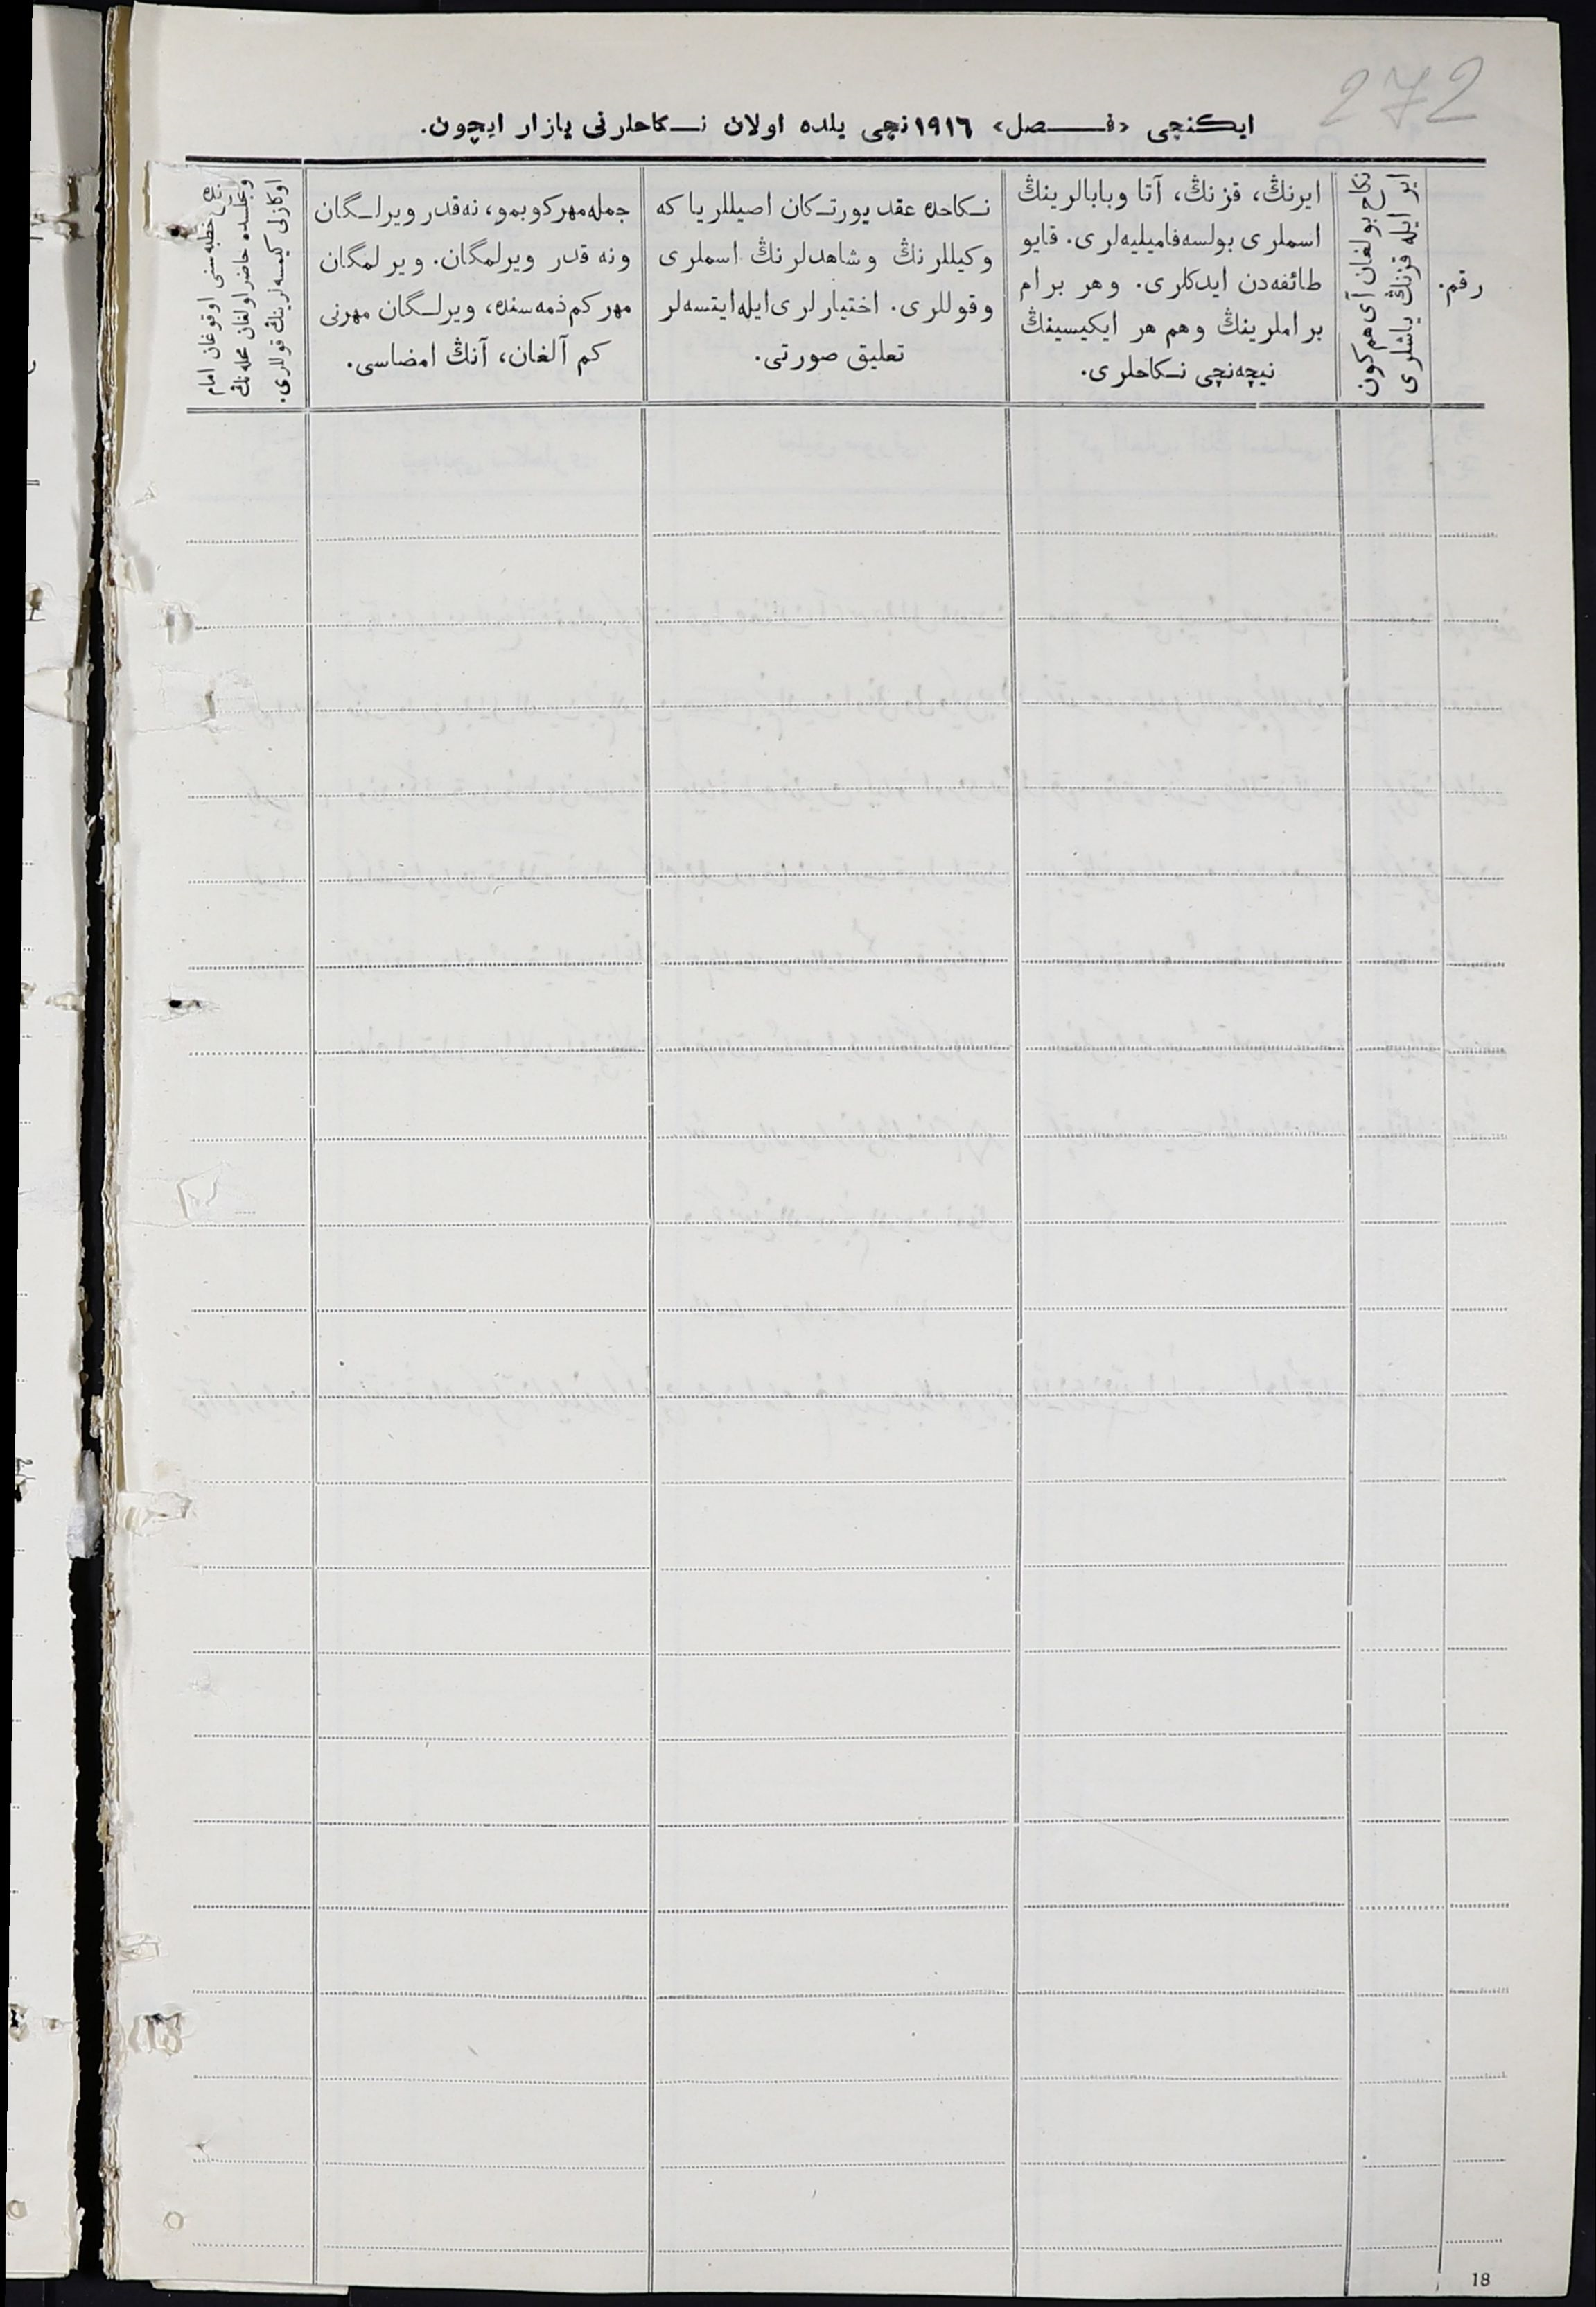 272
ایكنچی «فـصل» ١٩١٦نچی یلده اولان نـكاحلرنی یازار ایچون.
رقم.
نكاح بولغان آی هم كون
ایر ایله قزنڭ یاشلری
ایرنڭ، قزنڭ، آتا وبابالرینڭ
اسملری بولسه فامیلیه‌لری. قایو
طائفه‌دن ایدكلری. وهر برام
براملرینڭ وهم هر ایكیسینڭ
نیچه‌نچی نـكاحلری.
نـكاحده عقد یورتـكان اصیللریا كه
وكیللرنڭ وشاهدلرنڭ اسملری
وقوللری. اختیارلری ایله ایتسه‌لر
تعلیق صورتی.
جمله مهر كوبمو، نه قدر ویرلـگان
ونه قدر ویرلمگان. ویرلمگان
مهر كم ذمه سنده، ویرلـگان مهرنی
كم آلغان، آنڭ امضاسی.
خطبه سنی اوقوغان امام
ومجلسده حاضر اولغان محله‌نڭ
اوكازلی كیمسه‌لرینڭ قوللری.
18